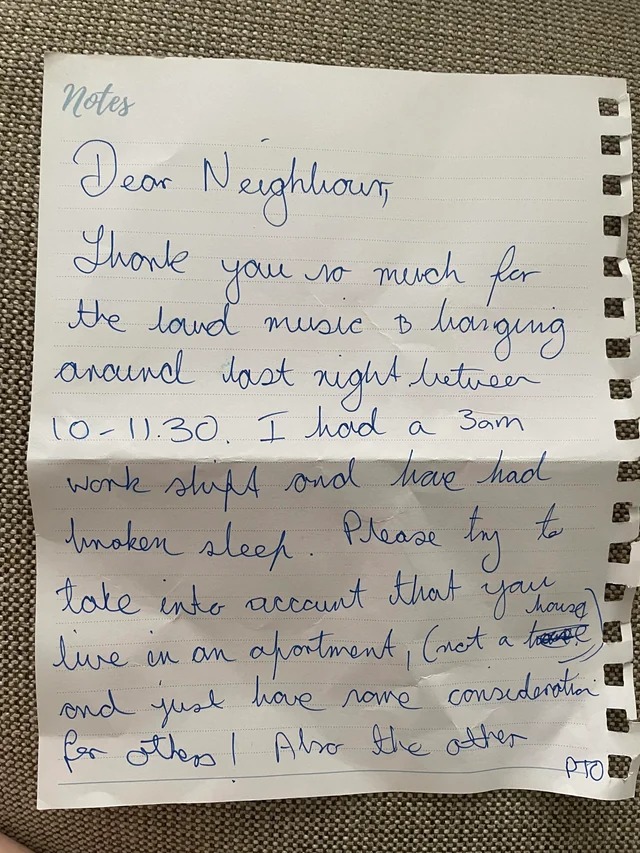 Notes
Dear Neighbour,
Thank you so much for
the loud music & banging
around last night between
10-11.30. I had a 3am
work shift and have had
broken sleep. Please try to
take into account that you
live in an apartment, (not a house)
and just have some consideration
for others! Also the other
PTO